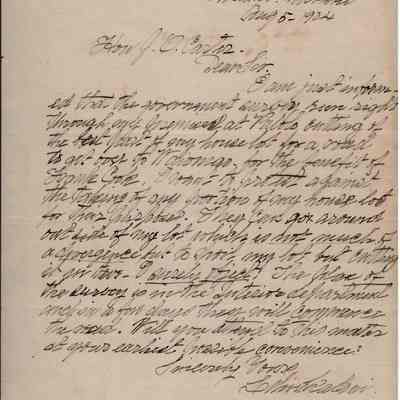 Aug 5 - 1904
Hon J. O. Carter.
Dear Sir.
I am just inform-
ed that the government survey run right
through my premises, at cutting of
the best part of my house lot for a road
to get over to for the benefit of
Frank I want to protest against
the taking of any portion of my house lot
for that purpose. They can go around
out side of my lot which is not much of
a not, my lot, but cutting
it in two. I surely object. The plan of
the survey is in the Interior department
and in a few days they will commence
the road. Will you attend to this matter
at your earliest possible convenience:
Sincerely Yours,